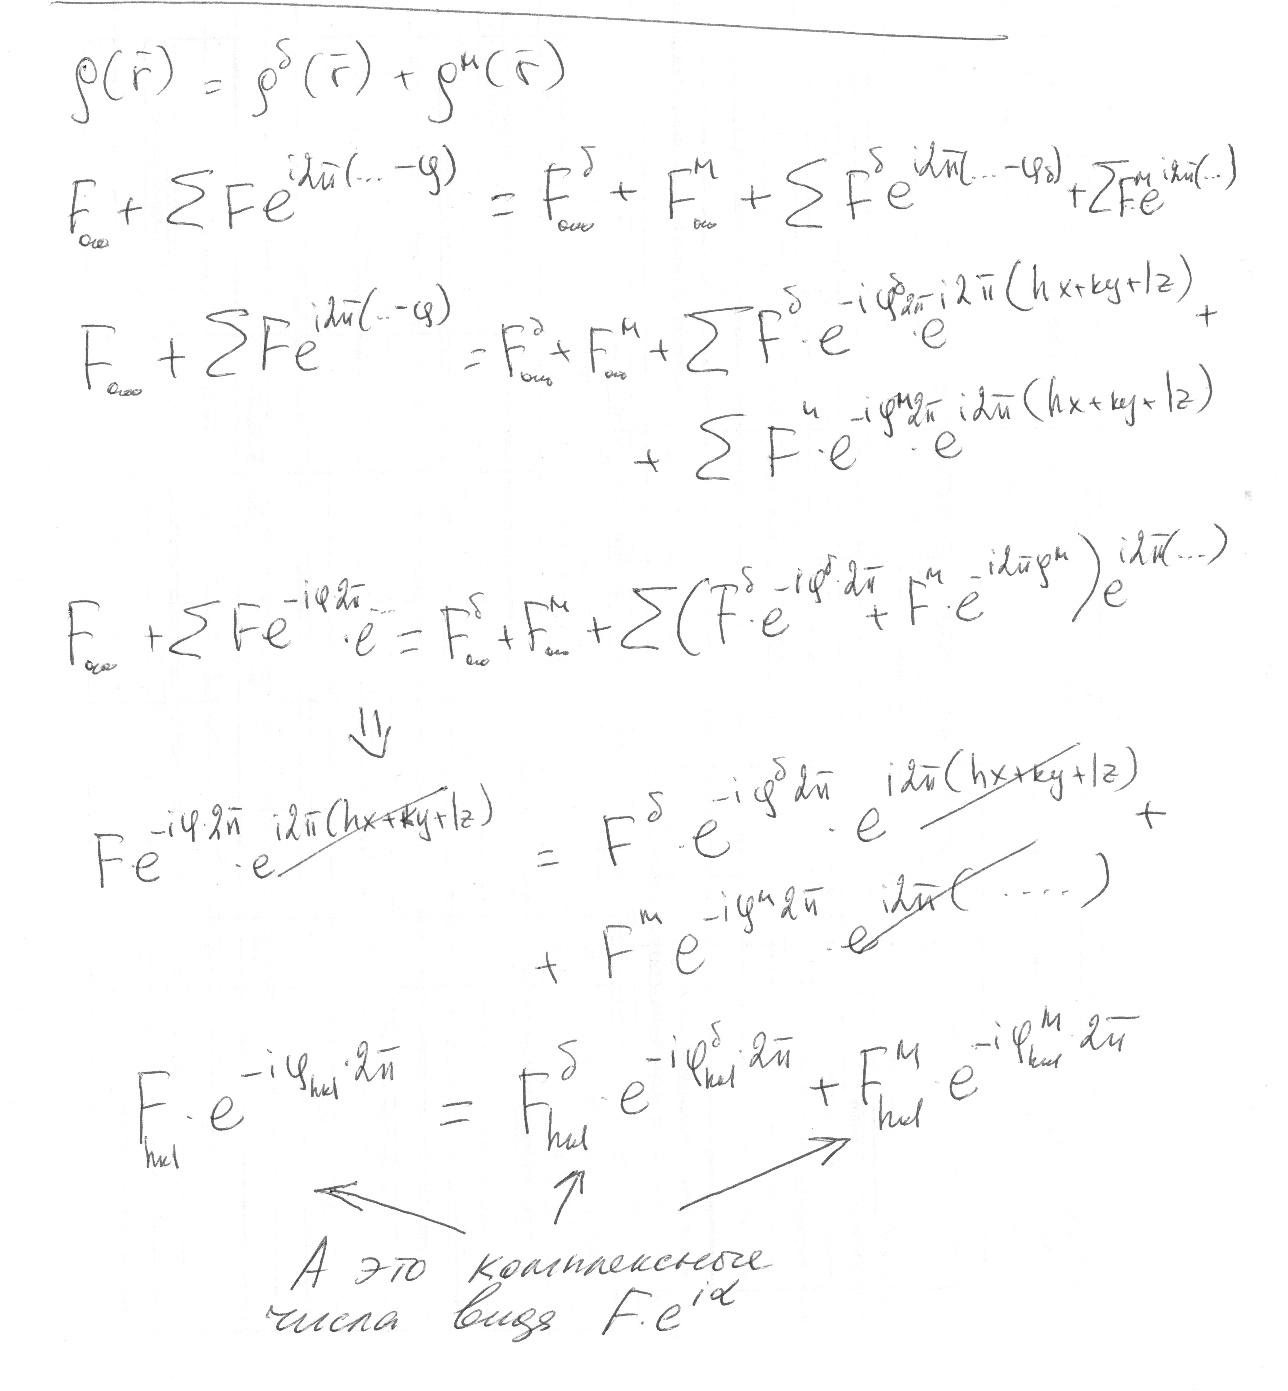 ρ(r̄) = ρᵟ(r̄) + ρᴹ(r̄)
F₀₀₀ + ΣFe^{i2π(...-φ)} = F₀₀₀^δ + F₀₀₀^м + ΣF^δ e^{i2π(...-φ_δ)} + ΣF^м e^{i2π(...)}
F₀₀₀ + ΣFe^{i2π(...-φ)} = F₀₀₀^δ + F₀₀₀^м + ΣF^δ · e^{-iφ^δ 2π} · e^{-i2π(hx+ky+lz)} +
+ ΣF^м · e^{-iφ^м 2π} · e^{i2π(hx+ky+lz)}
F₀₀₀ + ΣFe^{-iφ·2π} · e^{...} = F₀₀₀^δ + F₀₀₀^м + Σ(F^δ · e^{-iφ^δ·2π} + F^м · e^{-i2πφ^м}) e^{i2π(...)}
⇓
Fe^{-iφ·2π} · e^{i2π(hx+ky+lz)} = F^δ · e^{-iφ^δ 2π} · e^{i2π(hx+ky+lz)} +
+ F^м e^{-iφ^м 2π} · e^{i2π(....)}
F_{hkl} · e^{-iφ_{hkl}·2π} = F_{hkl}^δ · e^{-iφ_{hkl}^δ·2π} + F_{hkl}^м · e^{-iφ_{hkl}^м·2π}
А это комплексные
числа вида F·e^{iα}